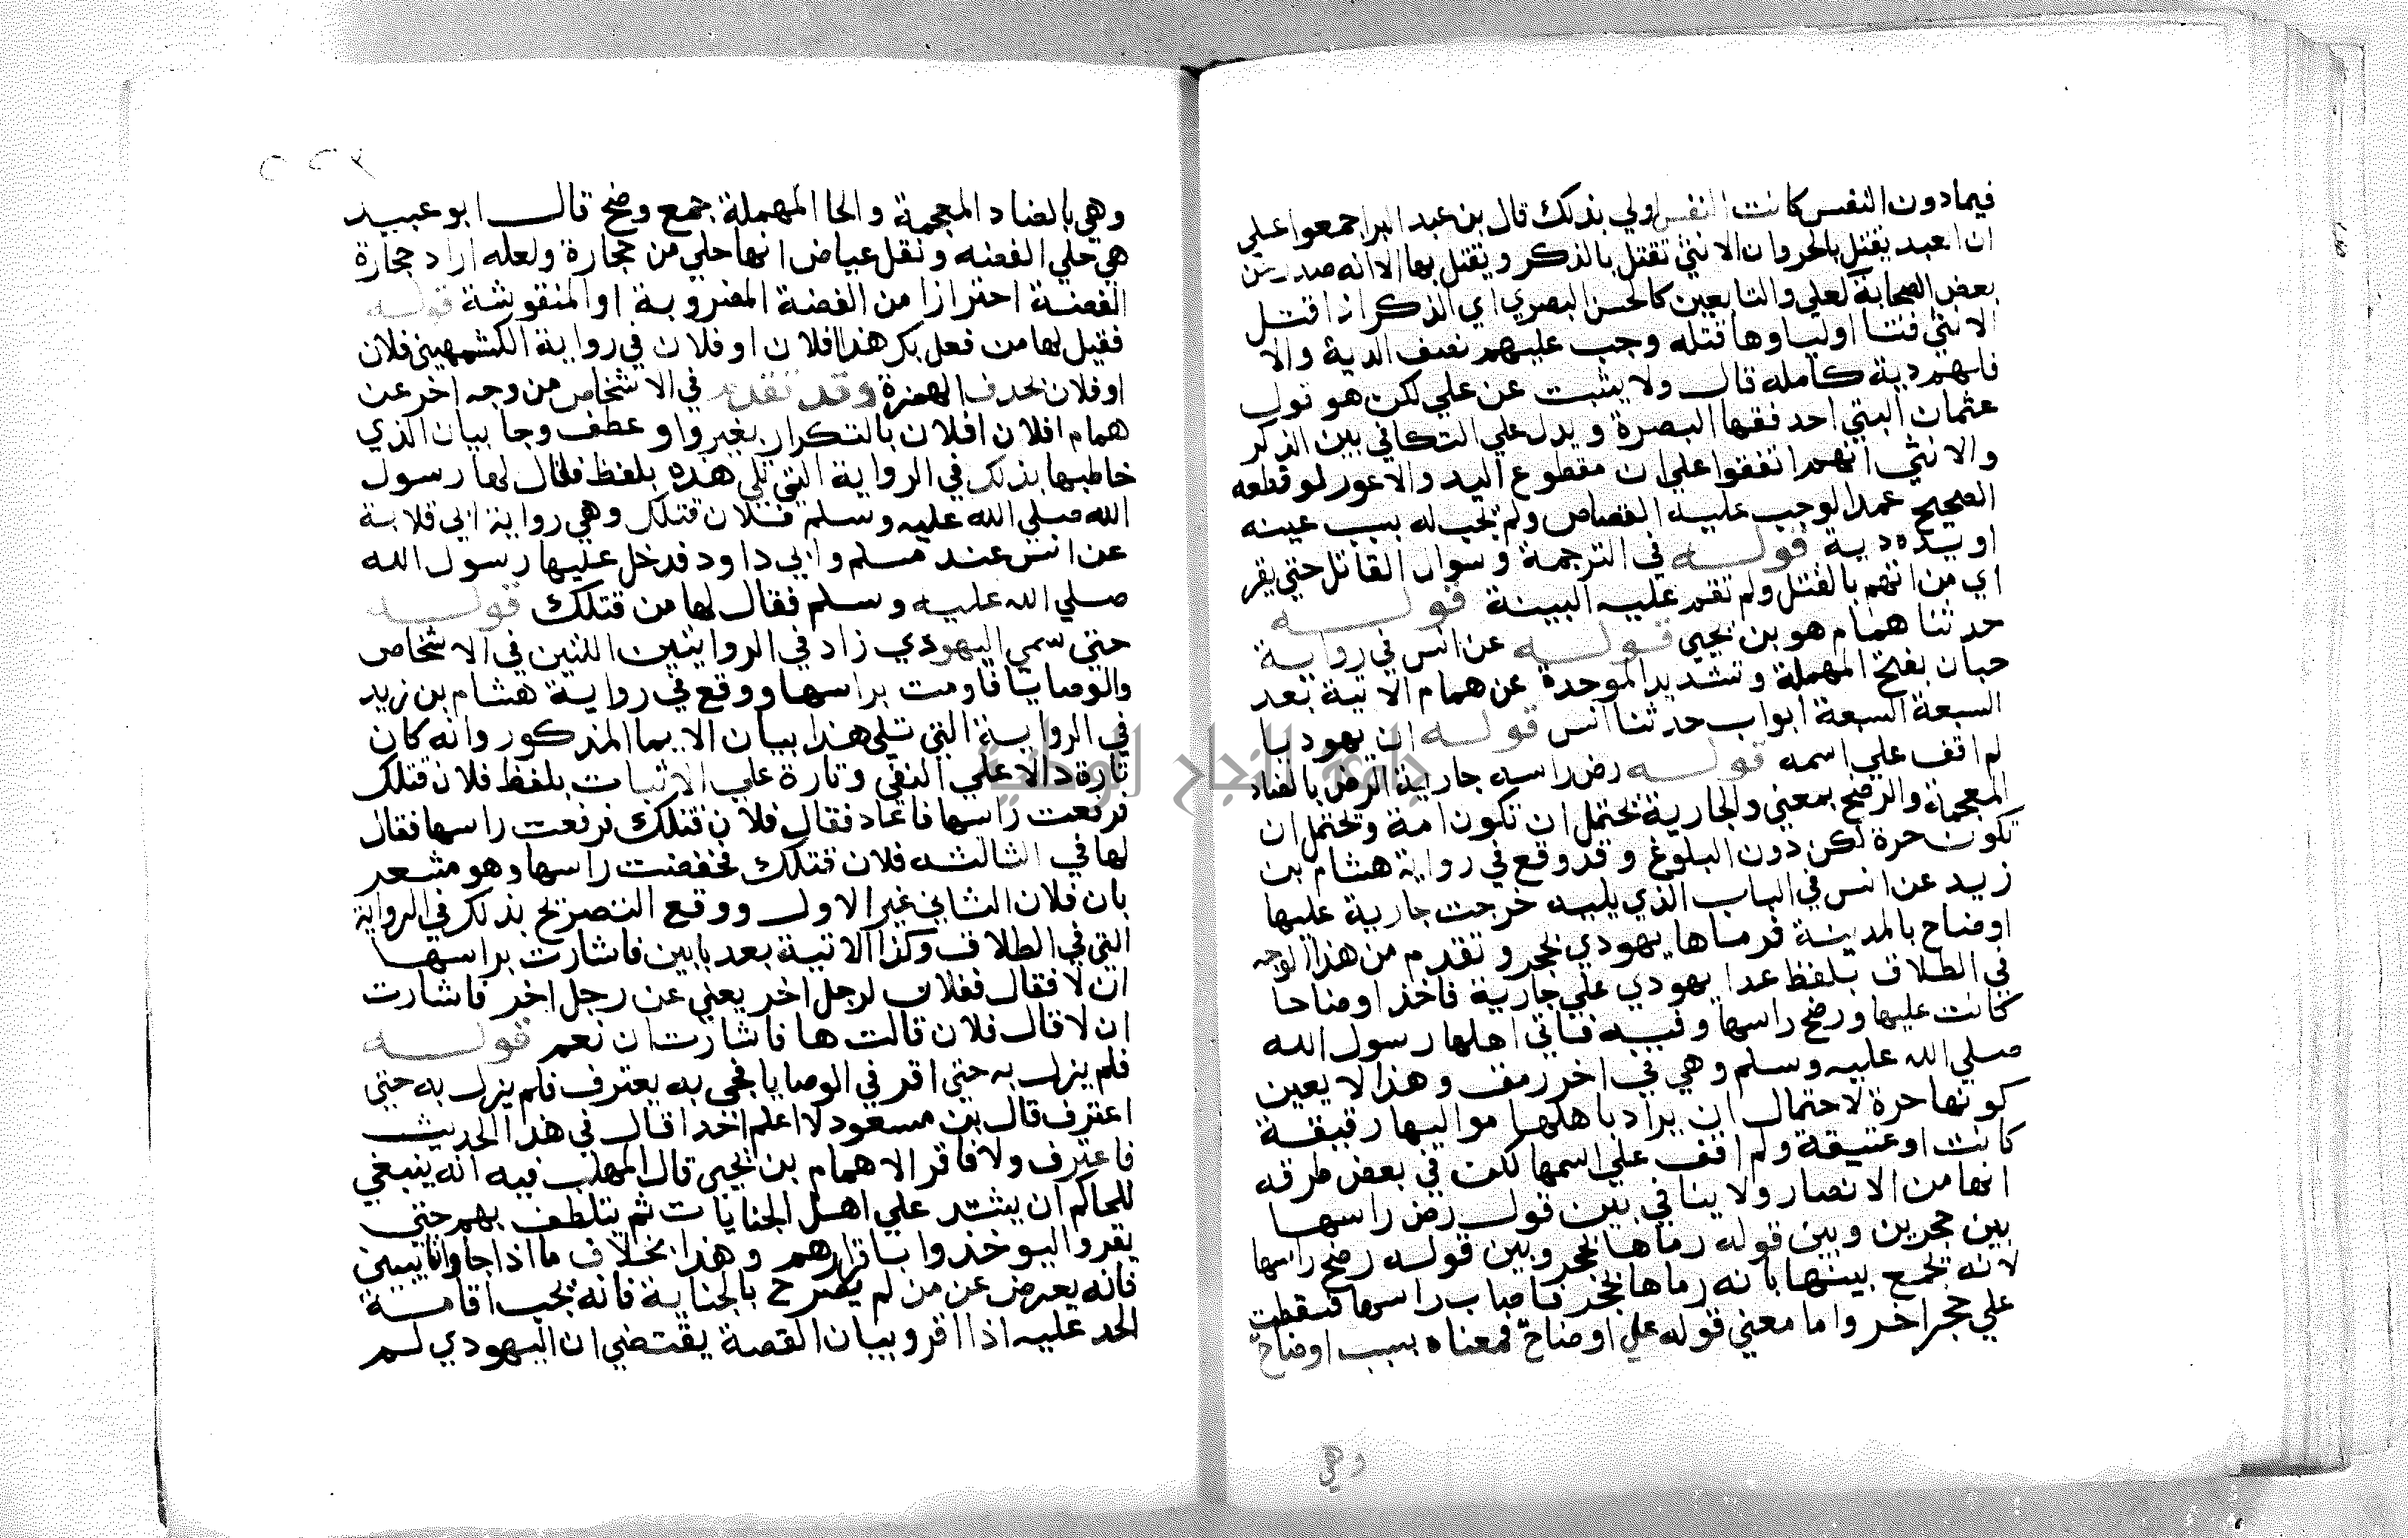 فيمادون النفس كانت النفس اولي بذلك قال بن عبد البر اجمعوا علي
ان العبد يقتل بالحر وان الانثي تقتل بالذكر ويقتل بها الا انه صدر عن
بعض الصحابة كعلي والتابعين كالحسن البصري اي الذكر اذا قتل
الانثي فشا اولياوها قتله وجب عليهم نصف الدية والا
فلهم دية كامله قال ولا يثبت عن علي لكن هو قول
عثمان البتي احد فقها البصرة ويدل علي التكافي بين الذكر
والانثي انهم اتفقوا علي ان مقطوع اليد والاعور لو قطعه
الصحيح عمدا لوجب عليه القصاص ولم يجب له بسبب عينه
او يده دية قوله في الترجمة وسوال القاتل حتي يقر
اي من اتهم بالقتل ولم تقم عليه البينة قوله
حدثنا همام هو بن يحيي قوله عن انس في رواية
حبان بفتح المهملة وتشديد الموحدة عن همام الاتية بعد
السبعة السبعة ابواب حدثنا انس قوله ان يهوديا
لم اقف علي اسمه قوله رض راسه جارية الرض بالضاد
المعجمة والرضخ بمعني والجارية يحتمل ان تكون امة ويحتمل ان
تكون حرة لكن دون البلوغ وقد وقع في رواية هشام بن
زيد عن انس في الباب الذي يليه خرجت جارية عليها
اوضاح بالمدينة فرماها يهودي بحجر وتقدم من هذا الوجه
في الطلاق بلفظ عدا يهودي علي جارية فاخذ اوضاحا
كانت عليها ورضخ راسها وفيه فاتي اهلها رسول الله
صلي الله عليه وسلم وهي في اخر رمق وهذا لا يعين
كونها حرة لاحتمال ان يراد باهلها مواليها رقيقة
كانت او عتيقة ولم اقف علي اسمها لكن في بعض طرقه
انها من الانصار ولا ينافي بين قول رض راسها
بين حجرين وبين قوله رماها بحجر وبين قوله رضخ راسها
لانه يجمع بينها بانه رماها بحجر فاصاب راسها فسقطت
علي حجر اخر واما معني قوله علي اوضاح فمعناه بسبب اوضاح
وهي
وهي بالضاد المعجمة والحا المهملة جمع وضح قال ابو عبيد
هي حلي الفضه ونقل عياض انها حلي من حجارة ولعله اراد حجارة
الفضة احترازا من الفضة المضروبة او المنقوشة قوله
فقيل لها من فعل بكر هذا افلان او فلان في رواية الكشميهني فلان
او فلان بحدف الهمزة وقد تقدم في الاشخاص من وجه اخر عن
همام افلان افلان بالتكرار بغير واو عطف وجا بيان الذي
خاطبها بذلك في الرواية التي تلي هذه بلفظ فقال لها رسول
الله صلي الله عليه وسلم فلان قتلك وهي رواية ابي قلابة
عن انس عند مسلم وابي داود فدخل عليها رسول الله
صلي الله عليه وسلم فقال لها من قتلك قوله
حتي سمي اليهودي زاد في الروايتين اللتين في الاشخاص
والوصايا فاومت براسها ووقع في رواية هشام بن زيد
في الرواية التي تلي هذا بيان الايما المذكور وانه كان
تارة دالا علي النفي وتارة علي الاثبات بلفظ فلان قتلك
فرفعت راسها فاعاد فقال فلان قتلك فرفعت راسها فقال
لها في الثالثه فلان قتلك فخفضت راسها وهو مشعر
بان فلان الثاني غير الاول ووقع التصريح بذلك في الرواية
التي في الطلاق وكذا الاتية بعد بابين فاشارت براسها
ان لا فقال ففلان لرجل اخر يعني عن رجل اخر فاشارت
ان لا قال فلان قالت ها فاشارت ان نعم قوله
فلم يزل به حتي اقر في الوصايا فجي به يعترف فلم يزل به حتي
اعترف قال بن مسعود لا اعلم احدا قال في هذا الحديث
فاعترف ولا فاقر الا همام بن يحيي قال المهلب فيه انه ينبغي
للحاكم ان يشتد علي اهل الجنايات ثم يتلطف بهم حتي
يقروا اليوخذوا باقرارهم وهذا بخلاف ما اذا جاوا تايبين
فانه يعرض عن من لم يصرح بالجناية فانه يجب اقامة
الحد عليه اذا اقر وبيان القصة يقتضي ان اليهودي لم
جامعة النجاح الوطنية